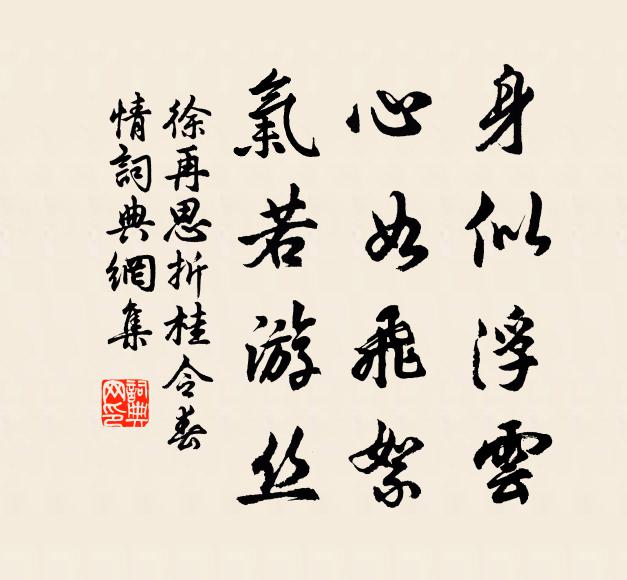 身似浮雲
心如飛絮
氣若游丝
徐再思折桂令春
情詞典網集
詞典
网印